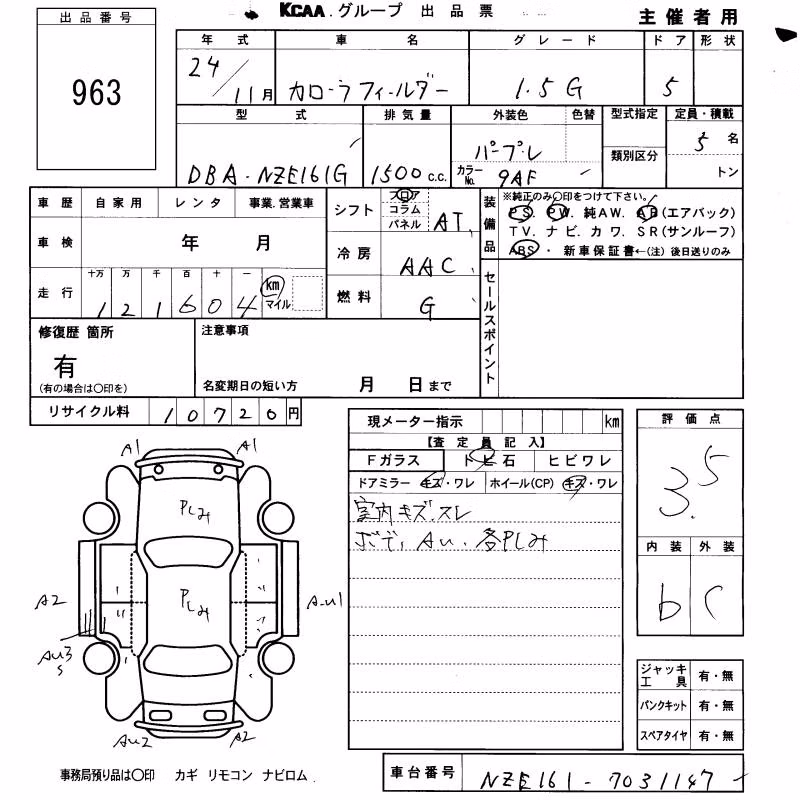 KCAA.グループ 出品票
主催者用
出品番号
963
年式 車名 グレード ドア 形状
24/11月 カローラフィールダー 1.5G 5
型式 排気量 外装色 色替 型式指定 定員・積載
DBA-NZE161G 1500c.c. パープル 5名
カラーNo. 9AF 類別区分 トン
車歴 自家用 レンタ 事業.営業車
シフト フロア コラム パネル AT
装備品 ※純正のみ○印をつけて下さい。
PS. PW. 純AW. AB(エアバック)
TV. ナビ. カワ. SR(サンルーフ)
ABS・新車保証書←(注)後日送りのみ
車検 年 月
冷房 AAC
走行 十万 万 千 百 十 一
121604 km マイル
燃料 G
セールスポイント
修復歴 箇所
有
(有の場合は○印を)
注意事項
名変期日の短い方 月 日まで
リサイクル料 10720円
現メーター指示 km
【査定員記入】
Fガラス トビ石 ヒビワレ
ドアミラー キズ・ワレ ホイール(CP) キズ・ワレ
室内キズ.スレ
ボデ, AU. 各PLみ
評価点
3.5
内装 外装
b C
A1 A1
PLみ
PLみ
A2 A-U1
AU3
S
AU2 A2
ジャッキ工具 有・無
パンクキット 有・無
スペアタイヤ 有・無
事務局預り品は○印 カギ リモコン ナビロム
車台番号 NZE161-7031147